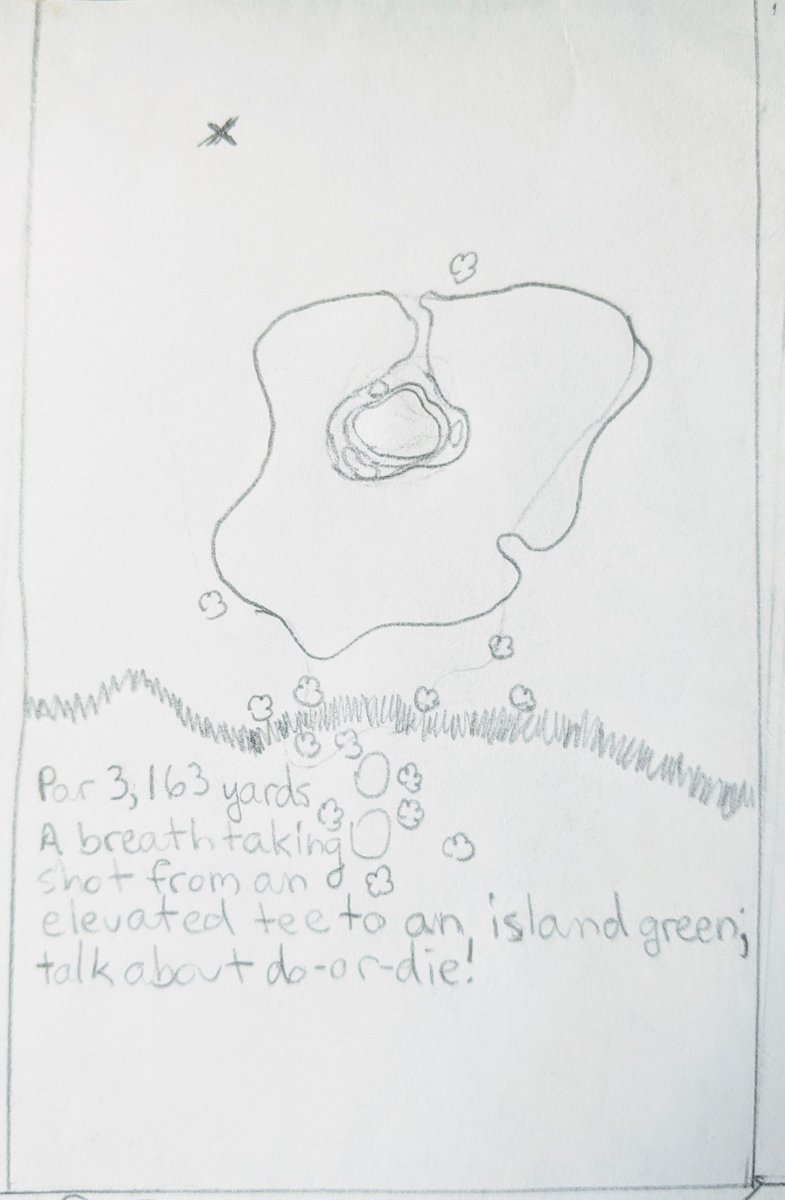 Par 3, 163 yards
A breathtaking
shot from an
elevated tee to an island green;
talk about do-or-die!